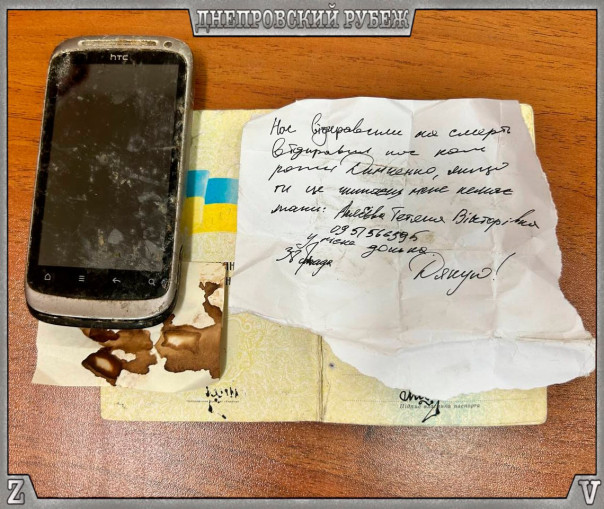 ДНЕПРОВСКИЙ РУБЕЖ
hTC
Нас відправили на смерть
відправив нас ком
роти Дитченко, якщо
ти це читаєш мене немає
мати: Тетяна Вікторівна
0951566595
у мене донька
38 бригада Дякую!
Підпис власника паспорта
Z V